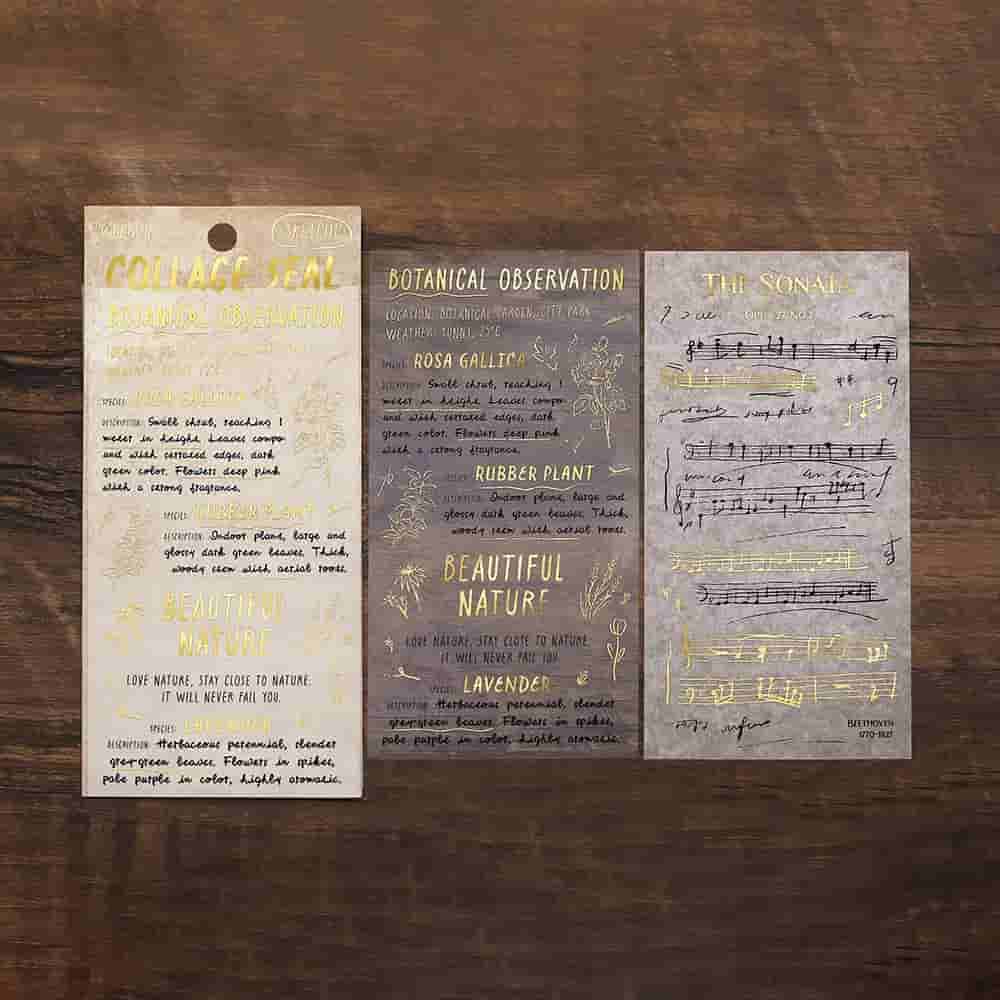 COLLAGE SEAL
BOTANICAL OBSERVATION
SPECIES: ROSA GALLICA
DESCRIPTION: Small shrub, reaching 1
meter in height. Leaves compo-
und with serrated edges, dark
green color. Flowers deep pink
with a strong fragrance.
SPECIES: RUBBER PLANT
DESCRIPTION: Indoor plant, large and
glossy dark green leaves. Thick,
woody stem with aerial roots.
BEAUTIFUL
NATURE
LOVE NATURE, STAY CLOSE TO NATURE.
IT WILL NEVER FAIL YOU.
SPECIES: LAVENDER
DESCRIPTION: Herbaceous perennial, slender
grey-green leaves. Flowers in spikes,
pale purple in color, highly aromatic.
BOTANICAL OBSERVATION
LOCATION: BOTANICAL GARDEN, CITY PARK
WEATHER: SUNNY, 25°C
SPECIES: ROSA GALLICA
DESCRIPTION: Small shrub, reaching 1
meter in height. Leaves compo-
und with serrated edges, dark
green color. Flowers deep pink
with a strong fragrance.
SPECIES: RUBBER PLANT
DESCRIPTION: Indoor plant, large and
glossy dark green leaves. Thick,
woody stem with aerial roots.
BEAUTIFUL
NATURE
LOVE NATURE, STAY CLOSE TO NATURE.
IT WILL NEVER FAIL YOU.
SPECIES: LAVENDER
Herbaceous perennial, slender
grey-green leaves. Flowers in spikes,
pale purple in color, highly aromatic.
THE SONATA
OPUS 27 NO.2
BEETHOVEN
1770-1827